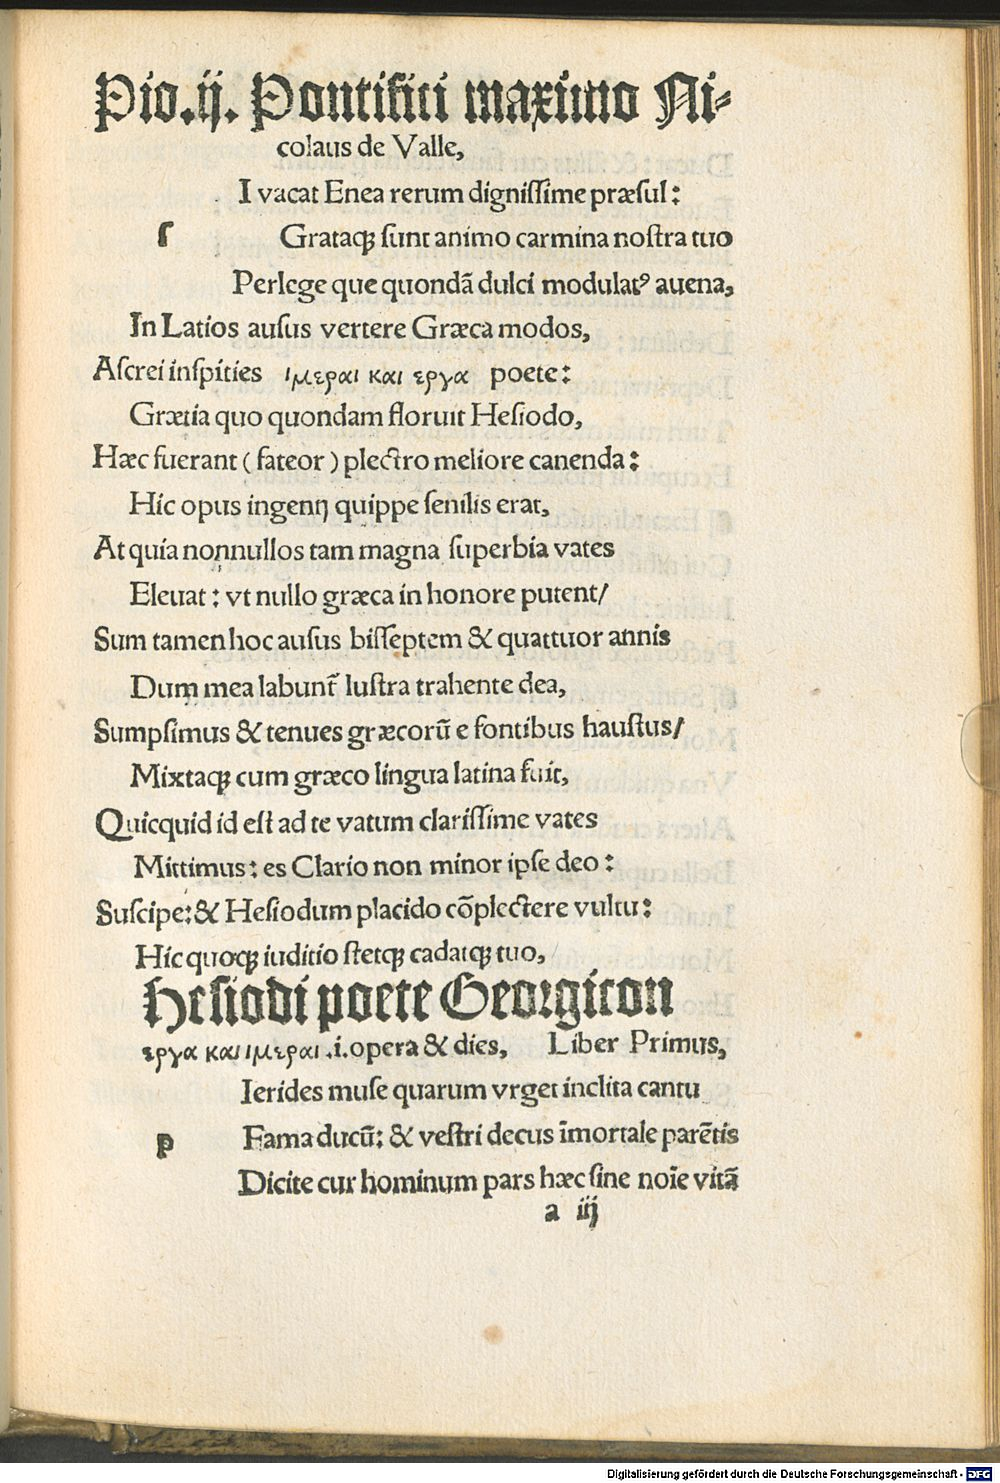 Pio.ij. Pontifici maximo Ni⸗
colaus de Valle,
I vacat Enea rerum digniſſime præsul:
ſ Grataqꝫ ſunt animo carmina noſtra tuo
Perlege que quondã dulci modulatꝰ auena,
In Latios auſus vertere Græca modos,
Aſcrei inſpities ιμεραι και εργα poete:
Grætia quo quondam floruit Heſiodo,
Hæc fuerant (fateor) plectro meliore canenda:
Hic opus ingenij quippe ſenilis erat,
At quia nonnullos tam magna ſuperbia vates
Eleuat: vt nullo græca in honore putent/
Sum tamen hoc auſus biſſeptem & quattuor annis
Dum mea labunt᷑ luſtra trahente dea,
Sumpſimus & tenues græcorũ e fontibus hauſtus/
Mixtaqꝫ cum græco lingua latina fuit,
Quicquid id eſt ad te vatum clariſſime vates
Mittimus: es Clario non minor ipſe deo:
Suſcipe: & Heſiodum placido cõplectere vultu:
Hic quoqꝫ iuditio ſtetqꝫ cadatqꝫ tuo,
Heſiodi poete Georgicon
εργα και ιμεραι .i. opera & dies, Liber Primus,
Ierides muſe quarum vrget inclita cantu
p Fama ducũ: & veſtri decus ĩmortale parẽtis
Dicite cur hominum pars hæc ſine noĩe vitã
a iij
Digitalisierung gefördert durch die Deutsche Forschungsgemeinschaft - DFG